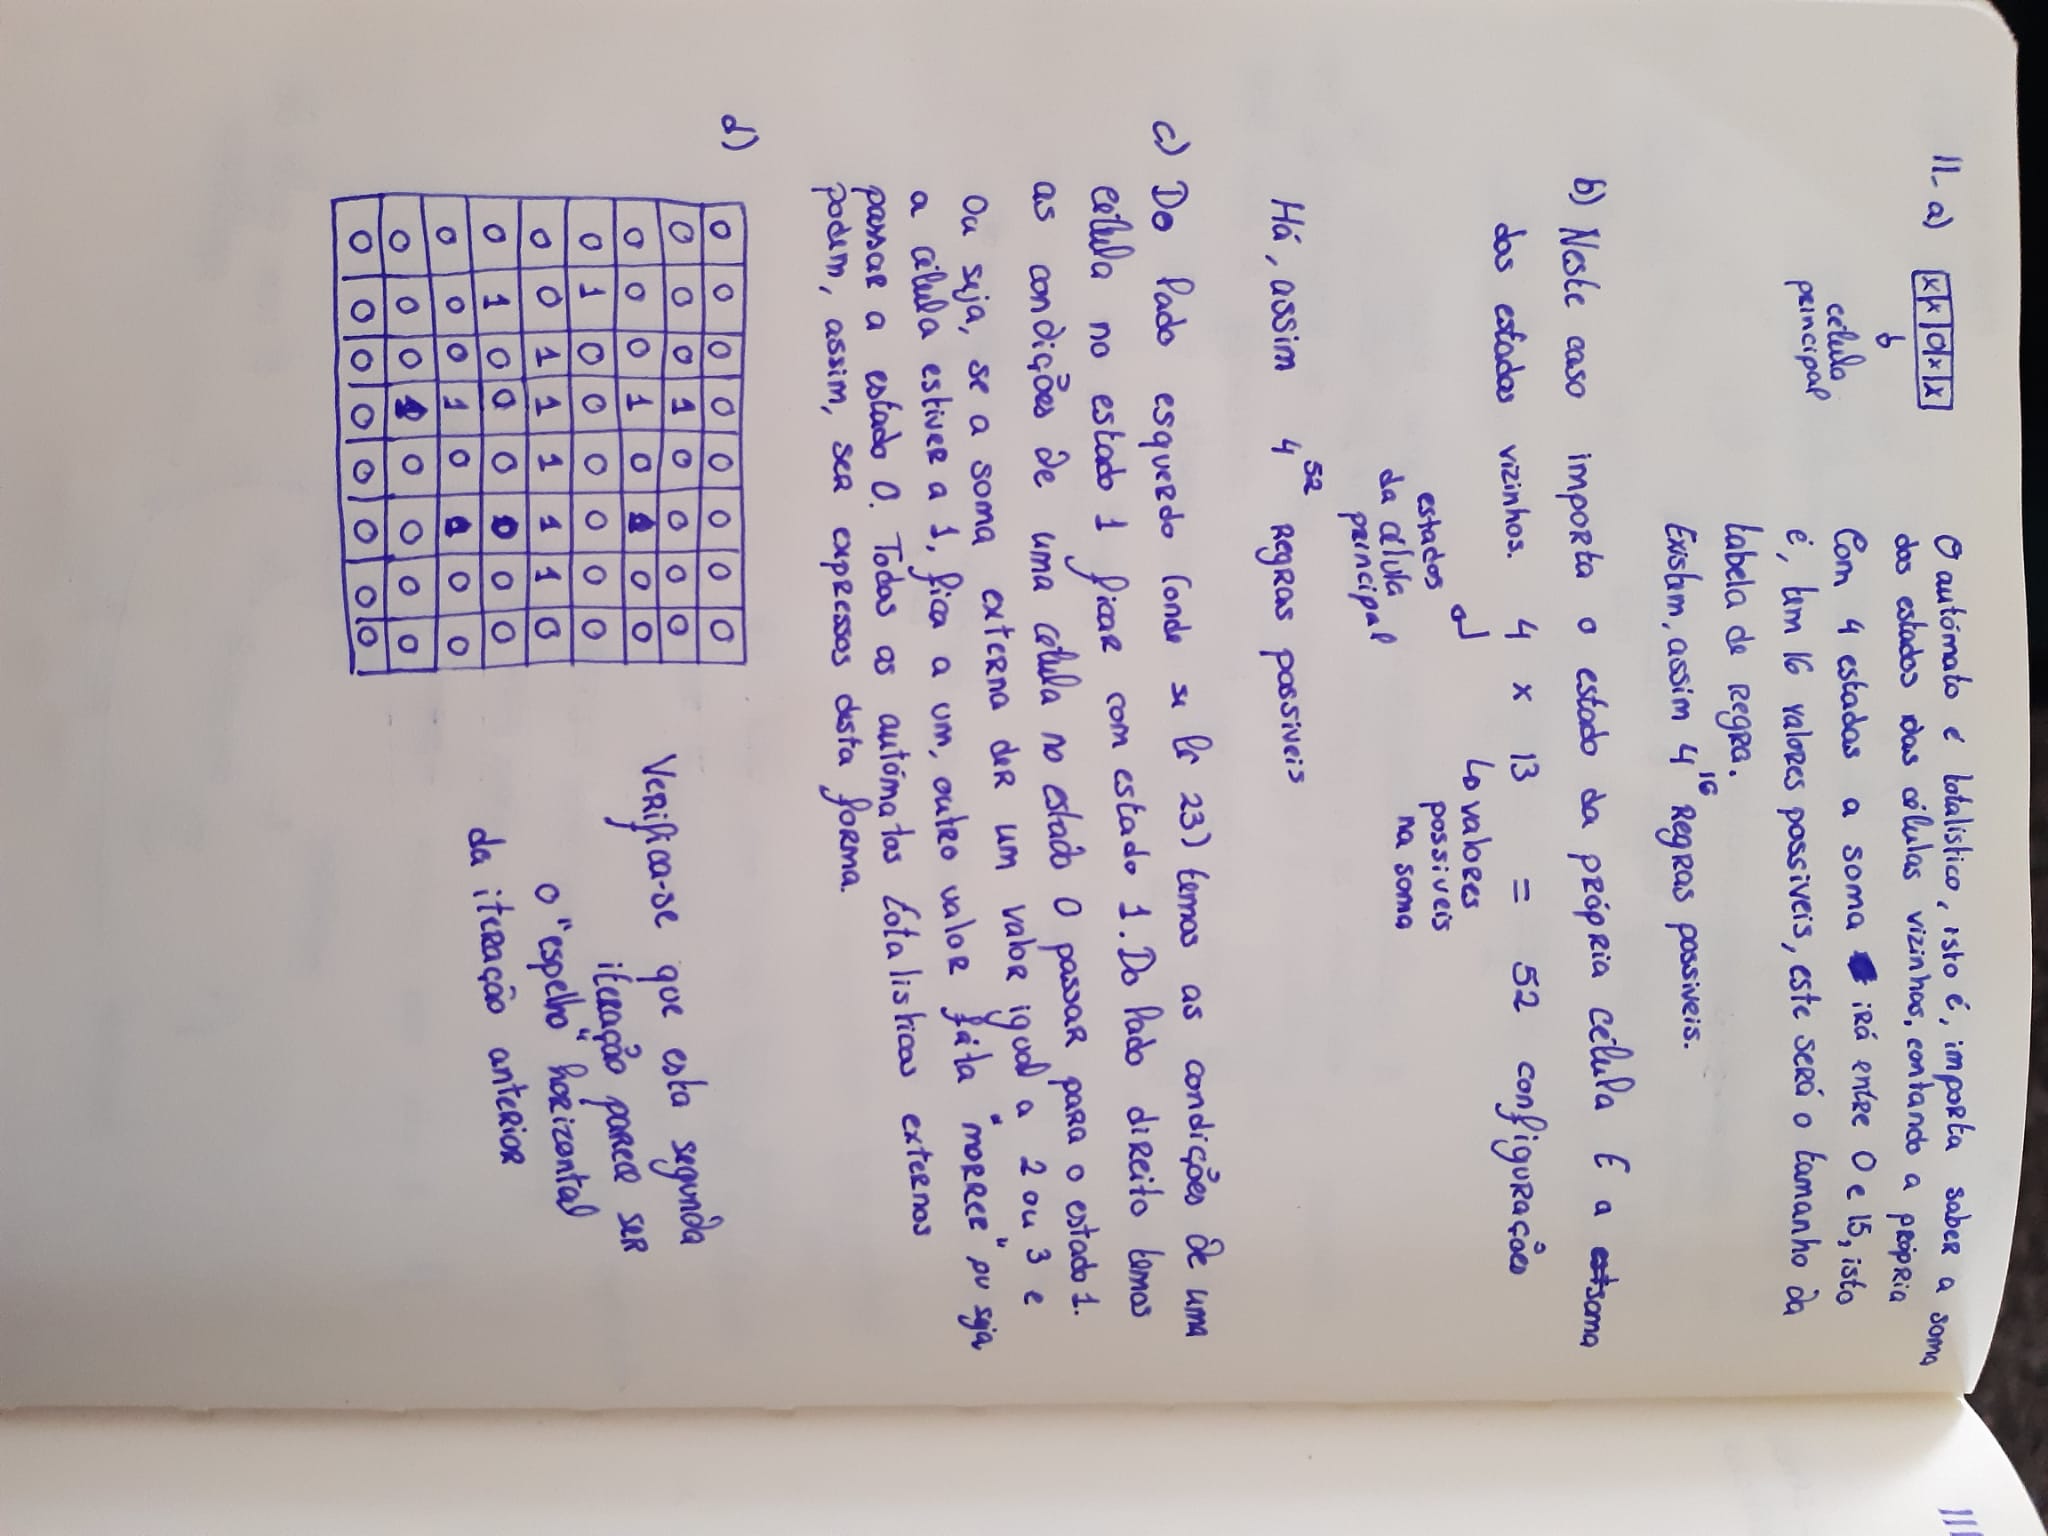 II_ a) x x O x x
célula
principal
O autómato é totalístico, isto é, importa saber a soma
dos estados das células vizinhas, contando a própria
Com 4 estados a soma irá entre 0 e 15, isto
é, tem 16 valores possiveis, este será o tamanho da
tabela de regra.
Existem, assim 4^16 Regras possiveis.
b) Neste caso importa o estado da própria célula E a soma
dos estados vizinhos. 4 x 13 = 52 configurações
estados
da célula
principal
valores
possiveis
na soma
Há, assim 4^52 Regras possiveis
c) Do lado esquerdo (onde se lê 23) temos as condições de uma
célula no estado 1 ficar com estado 1. Do lado direito temos
as condições de uma célula no estado 0 passar para o estado 1.
Ou seja, se a soma externa der um valor igual a 2 ou 3 e
a célula estiver a 1, fica a um, outro valor fá-la "morrer" ou seja
passar a estado 0. Todos os autómatos totalisticos externos
podem, assim, ser expressos desta forma.
d)
0 0 0 0 0 0 0 0
0 0 0 1 0 0 0 0
0 0 0 1 0 1 0 0
0 1 0 0 0 0 0 0
0 0 1 1 1 1 1 0
0 1 0 0 0 0 0 0
0 0 0 1 0 1 0 0
0 0 0 1 0 0 0 0
0 0 0 0 0 0 0 0
Verifica-se que esta segunda
iteração parece ser
o "espelho" horizontal
da iteração anterior
III